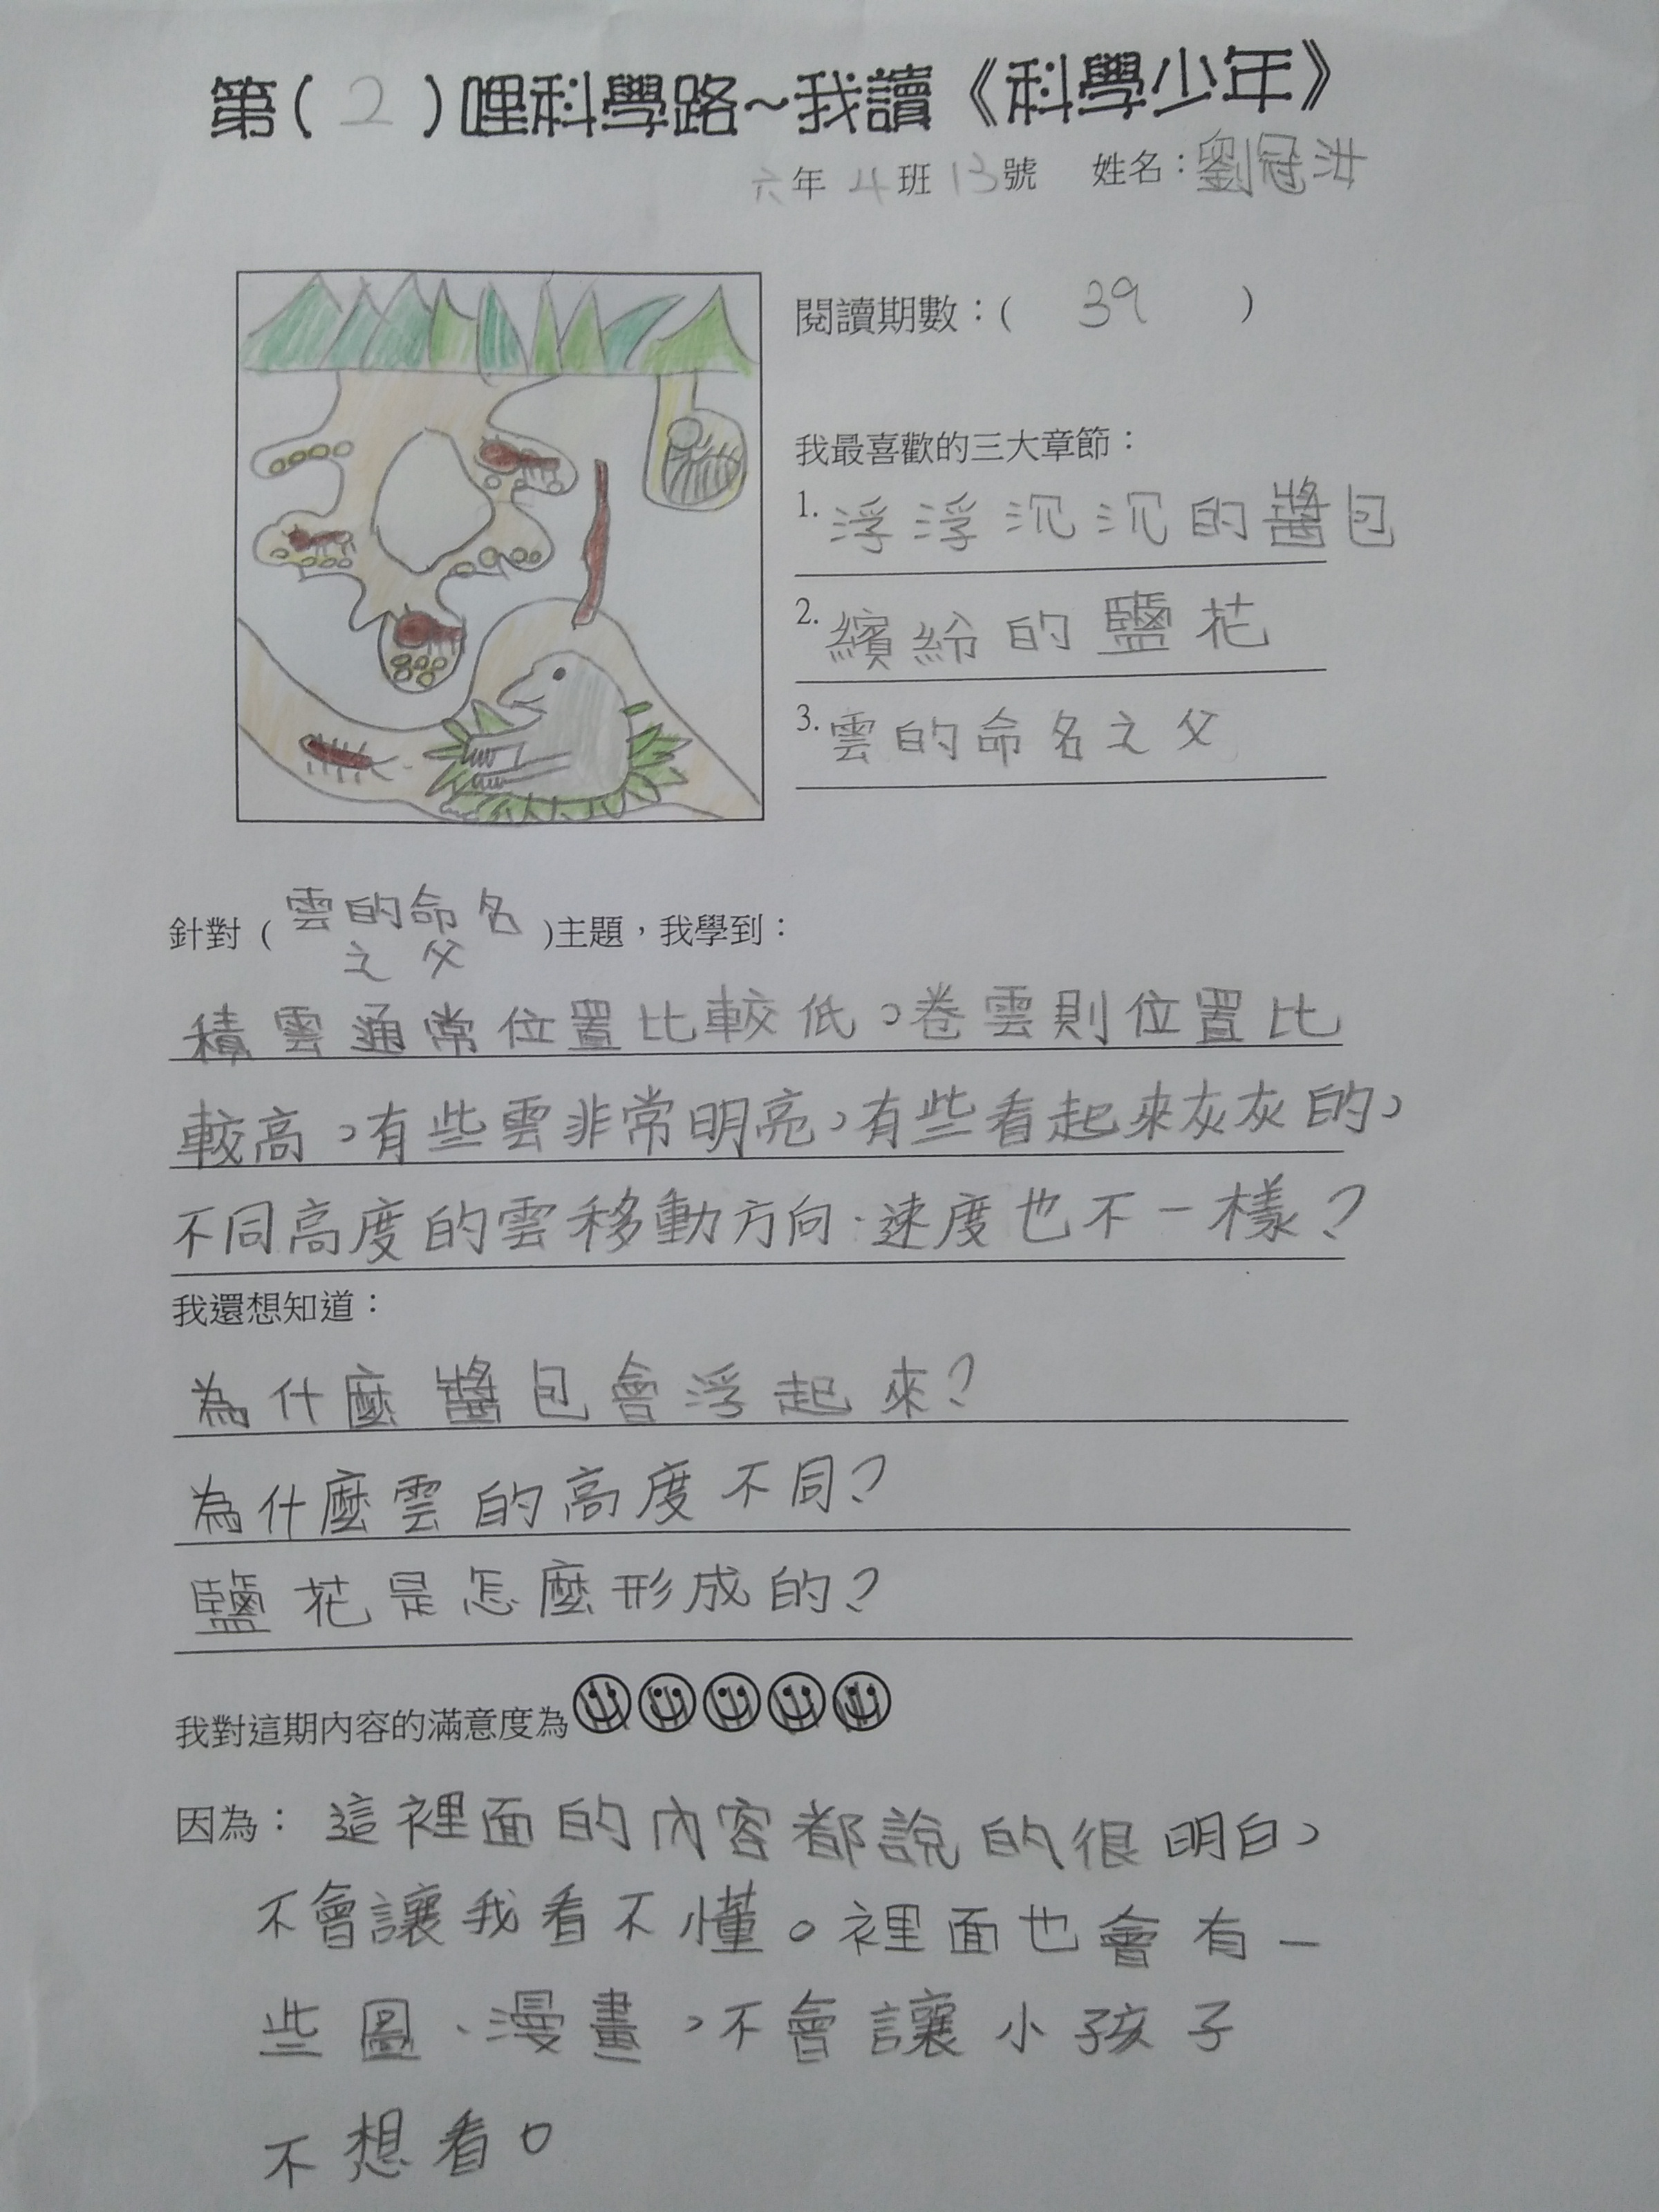 第(2)哩科學路~我讀《科學少年》
六年4班13號 姓名：劉冠汫
閱讀期數：( 39 )
我最喜歡的三大章節：
1. 浮浮沉沉的醬包
2. 繽紛的鹽花
3. 雲的命名之父
針對(雲的命名之父)主題，我學到：
積雲通常位置比較低，卷雲則位置比
較高，有些雲非常明亮，有些看起來灰灰的，
不同高度的雲移動方向、速度也不一樣？
我還想知道：
為什麼醬包會浮起來？
為什麼雲的高度不同？
鹽花是怎麼形成的？
我對這期內容的滿意度為
因為：這裡面的內容都說的很明白，
不會讓我看不懂。裡面也會有一
些圖、漫畫，不會讓小孩子
不想看。